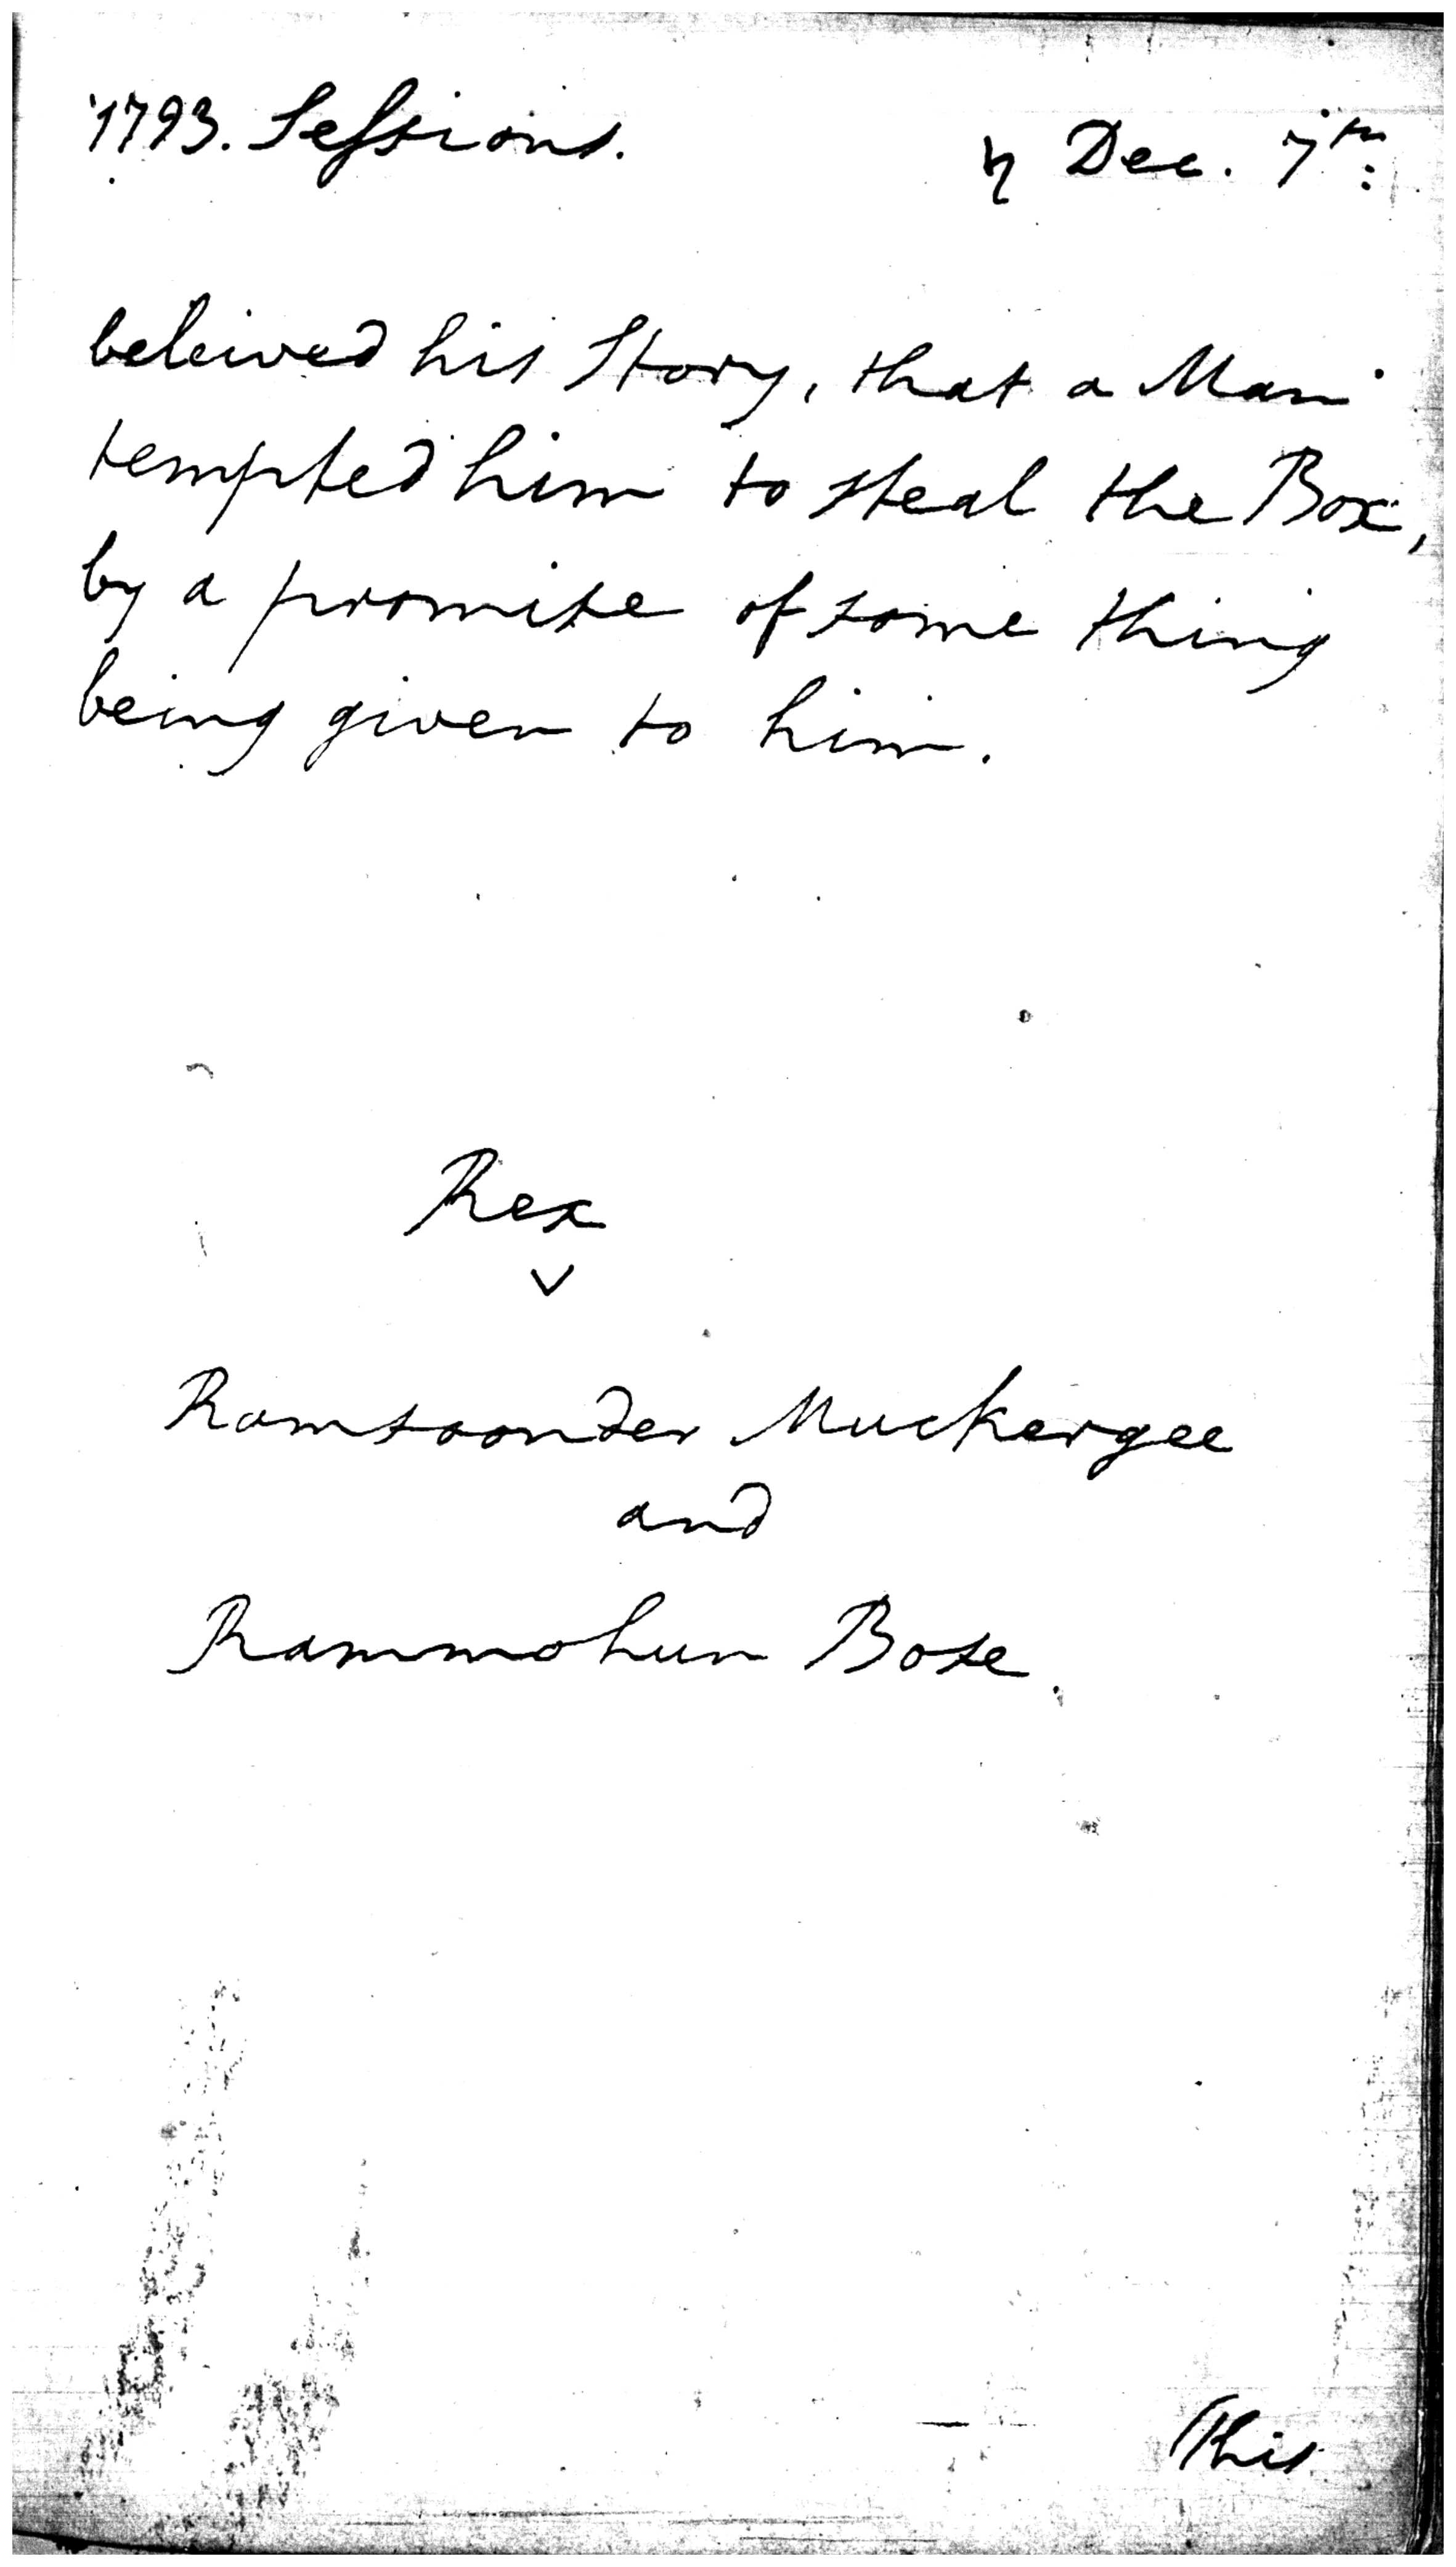 1793. Sessions. ♄ Dec. 7th:
beleived his Story, that a Man
tempted him to steal the Box,
by a promise of some thing
being given to him.
Rex
v
Ramsoonder Muckergee
and
Rammohun Bose.
This